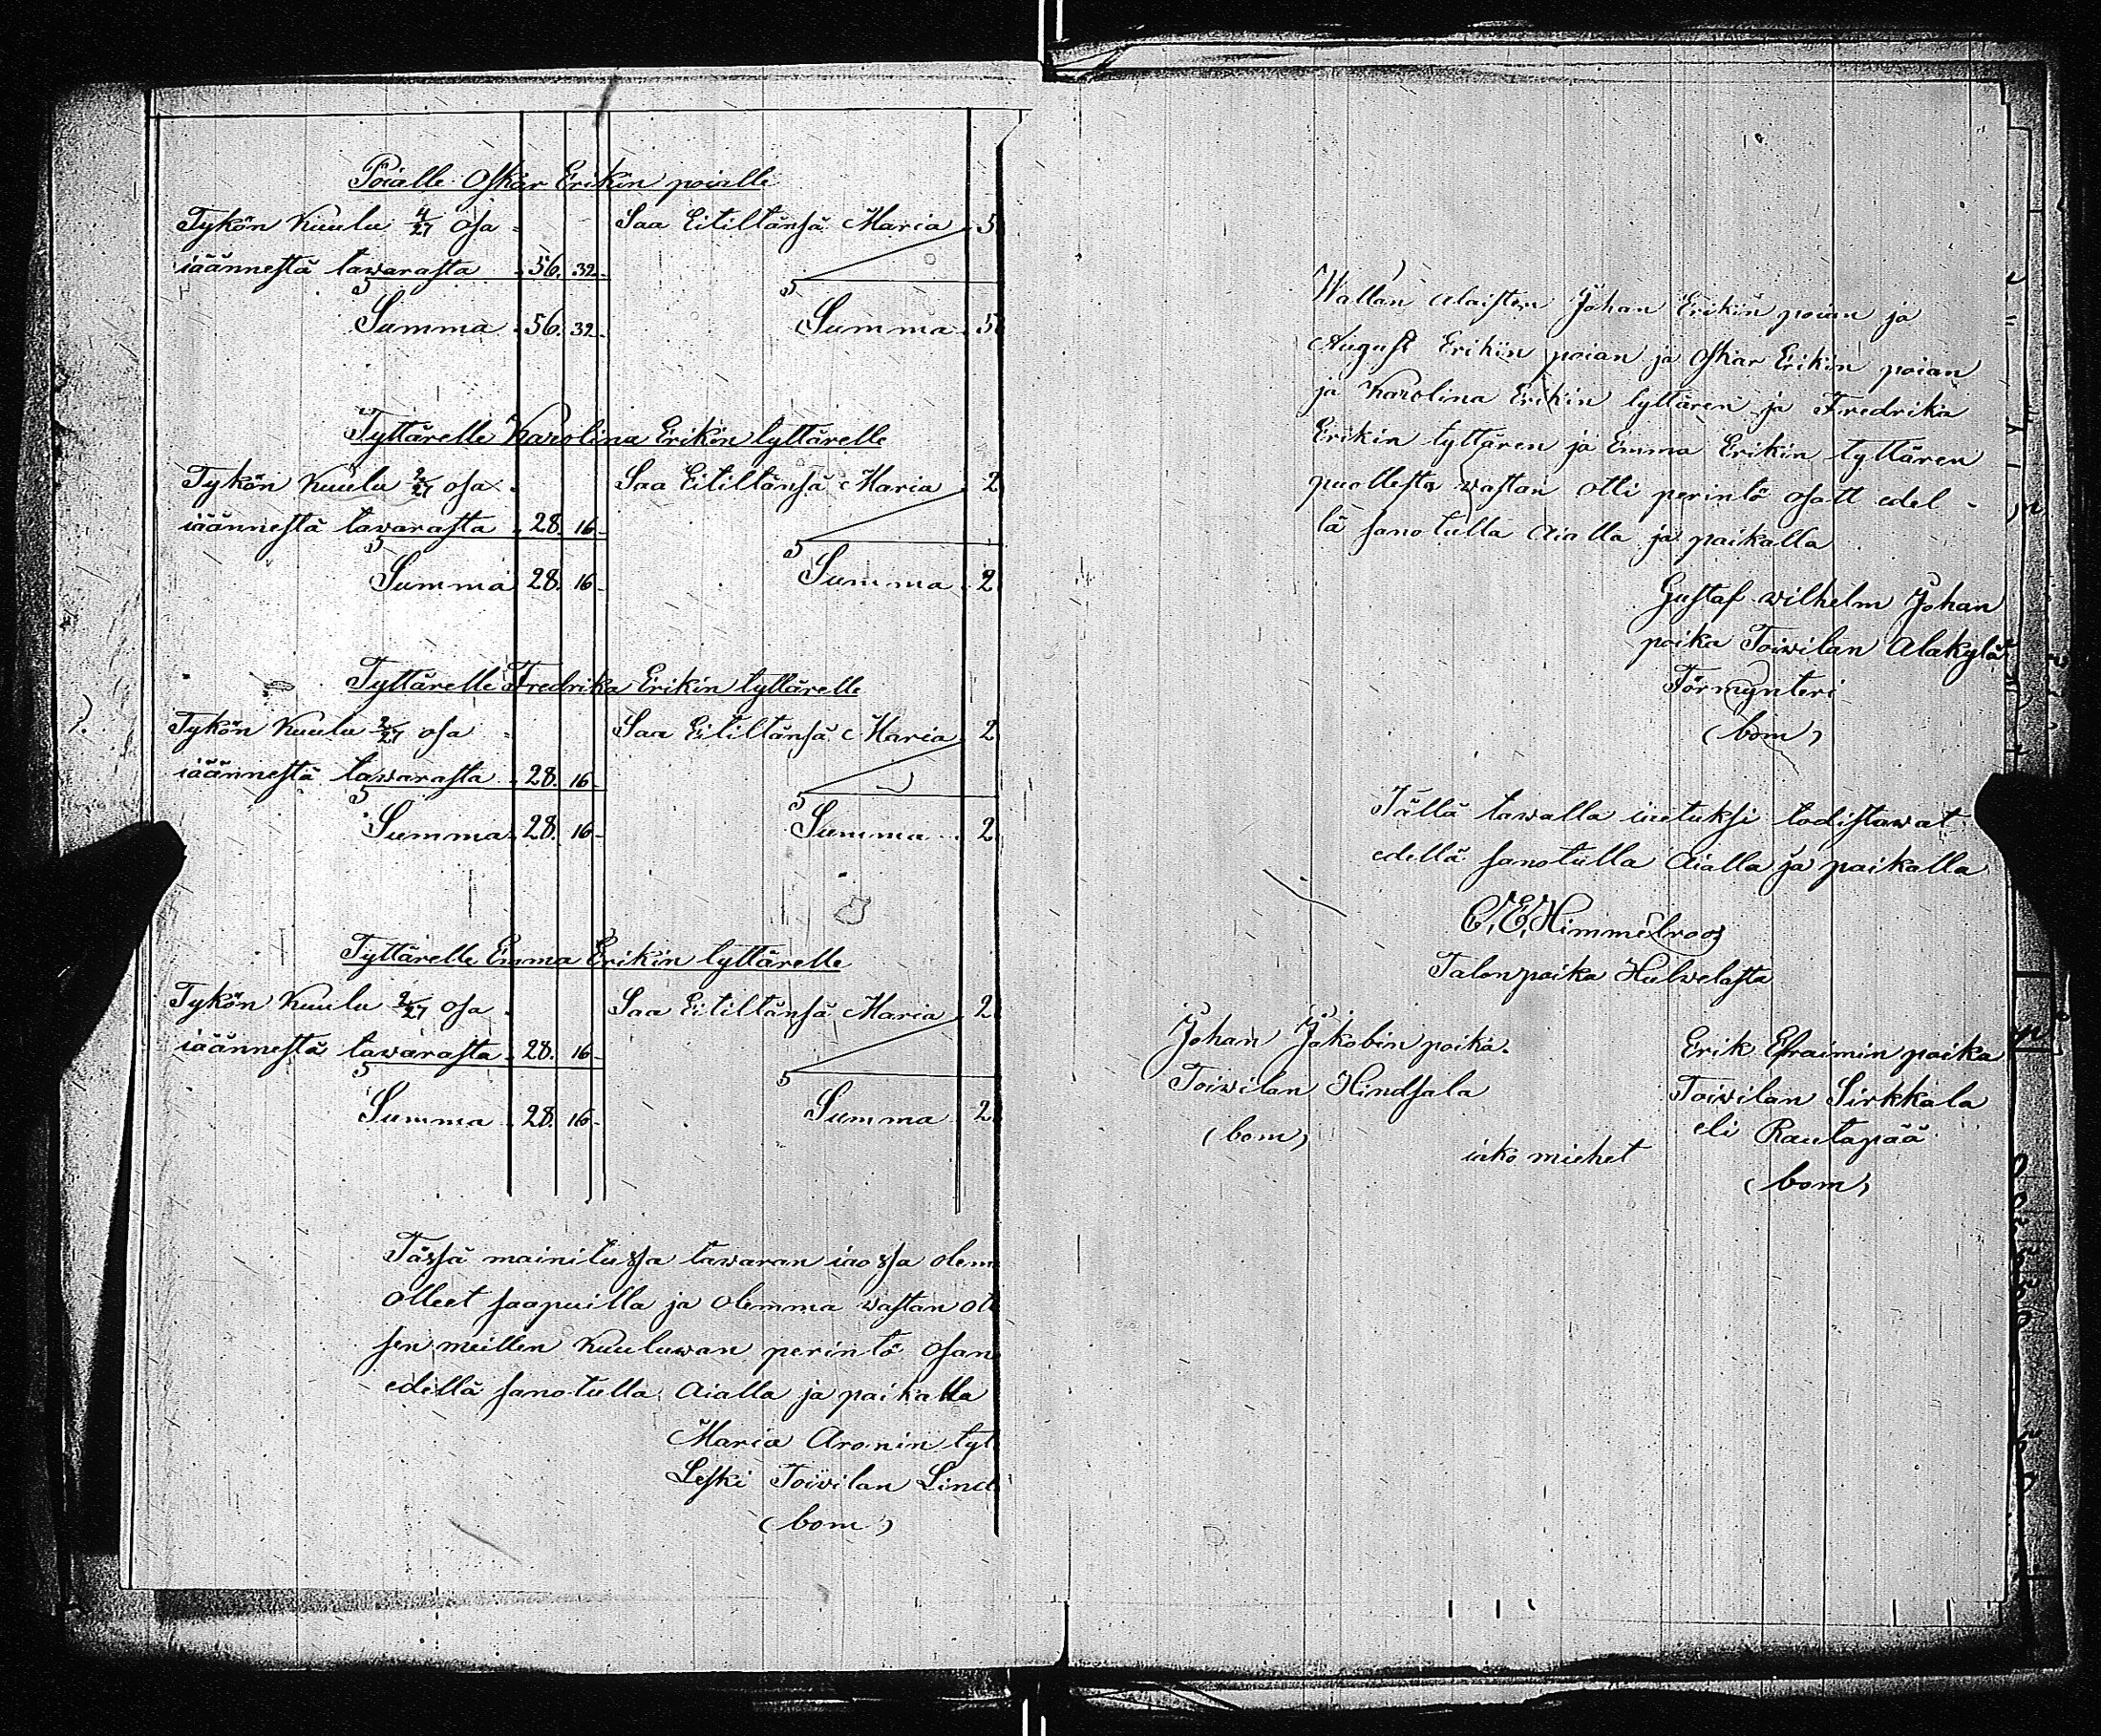 Poialle Oskar Erikin poialle
Tykön kuulu 4/27 osa Saa Eitiltänsä Maria 5
iäännestä tawarasta 56. 32
Summa 56. 32 Summa 5
Tyttärelle Karolina Erikin tyttärelle
Tykön kuulu 2/27 osa Saa Eitiltänsä Maria 2
iäännestä tawarasta 28. 16
Summa 28. 16 Summa 2
Tyttärelle Fredrika Erikin tyttärelle
Tykön kuulu 2/27 osa Saa Eitiltänsä Maria 2
iäännestä tawarasta 28. 16
Summa 28. 16 Summa 2
Tyttärelle Emma Erikin tyttärelle
Tykön kuulu 2/27 osa Saa Eitiltänsä Maria 2
iäännestä tawarasta 28. 16
Summa 28. 16 Summa 2
Tässä mainitussa tawaran iaossa olem
olleet saapuilla ja olemma wastan ot
sen meillen kuuluwan perintö osan
edellä sanotulla Aialla ja paikalla
Maria Aronin tyt
Leski Toiwilan Lind
(bom)
Wallan alaisten Johan Erikin poian ja
August Erikin poian ja Oskar Erikin poian
ja Karolina Erikin tyttären ja Fredrika
Erikin tyttären ja Emma Erikin tyttären
puollesta wastan otti perintö osatt edel-
lä sanotulla aialla ja paikalla
Gustaf wilhelm Johan
poika Toiwilan Alakylä
Förmynteri
(bom)
Tällä tawalla iaetuksi todistawat
edellä sanotulla aialla ja paikalla
C. E. Himmelroos
Talonpoika Hulwelasta
Johan Jakobin poika.
Toiwilan Hindsala
(bom)
Erik Efraimin poika
Toiwilan Sirkkala
eli Rautapää
(bom)
iako miehet